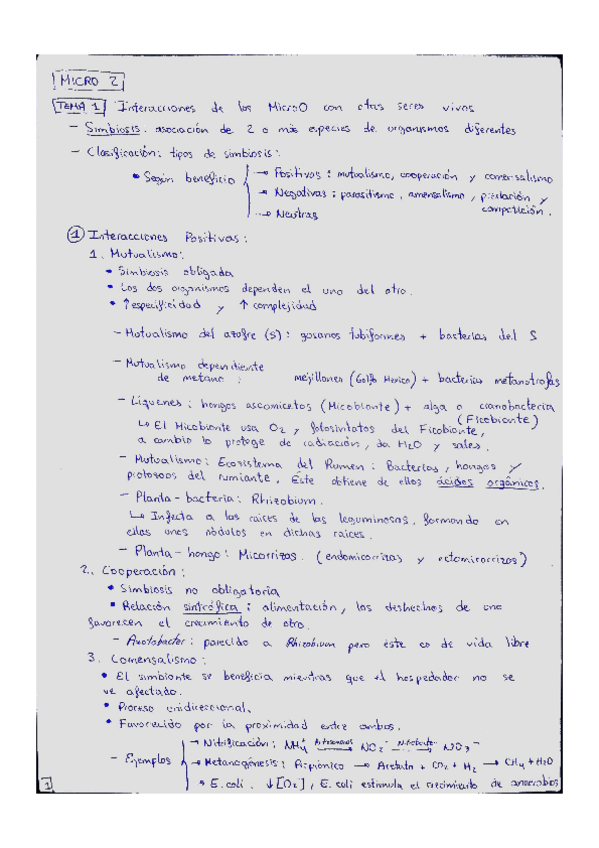 MICRO 2
TEMA 1 Interacciones de los MicroO con otros seres vivos
- Simbiosis: asociación de 2 o más especies de organismos diferentes
- Clasificación: tipos de simbiosis:
• Según beneficio → Positivas: mutualismo, cooperación y comensalismo
→ Negativas: parasitismo, amensalismo, predación y competición.
→ Neutras
① Interacciones Positivas:
1. Mutualismo:
• Simbiosis obligada
• Los dos organismos dependen el uno del otro.
• ↑ especificidad y ↑ complejidad
- Mutualismo del azofre (S): gusanos tubiformes + bacterias del S
- Mutualismo dependiente
de metano: mejillones (Golfo Mexico) + bacterias metanotrofas
- Liquenes: hongos ascomicetos (Micobionte) + alga o cianobacteria
(Ficobionte)
↳ El Micobionte usa O2 y fotosintatos del Ficobionte,
a cambio lo protege de radiación, da H2O y sales.
- Mutualismo: Ecosistema del Rumen: Bacterias, hongos y
protozoos del rumiante. Éste obtiene de ellos ácidos orgánicos.
- Planta-bacteria: Rhizobium.
↳ Infecta a las raíces de las leguminosas, formando en
ellas unos nódulos en dichas raíces.
- Planta-hongo: Micorrizas. (endomicorrizas y ectomicorrizas)
2. Cooperación:
• Simbiosis no obligatoria
• Relación sintrófica: alimentación, los deshechos de uno
favorecen el crecimiento de otro.
- Azotobacter: parecido a Rhizobium pero éste es de vida libre
3. Comensalismo:
• El simbionte se beneficia mientras que el hospedador no se
ve afectado.
• Proceso unidireccional.
• Favorecido por la proximidad entre ambos.
- Ejemplos → Nitrificación: NH4+ → NO2- → NO3-
→ Metanogénesis: Propiónico → Acetato + CO2 + H2 → CH4 + H2O
→ E.coli. ↓[O2], E.coli estimula el crecimiento de anaerobios
1